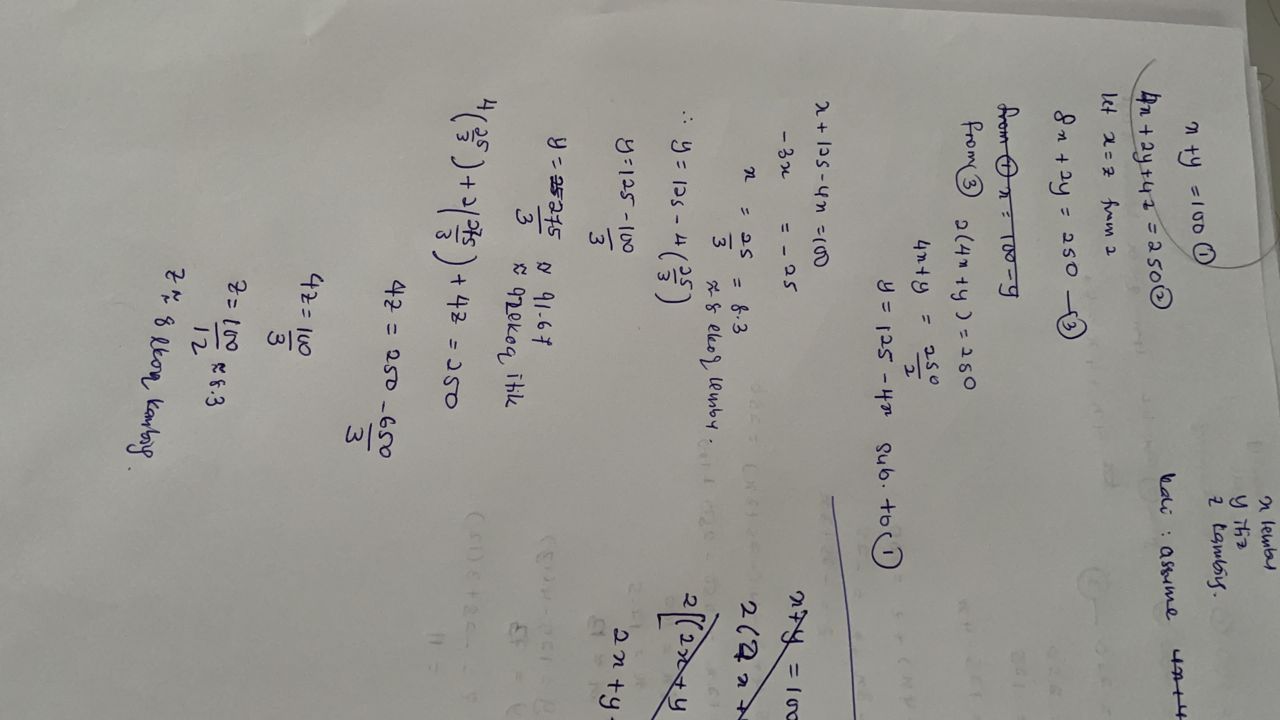 x lembu
y itik
z kambing.
kaci : assume 4x+4
x+y = 100 ①
4x + 2y + 4z = 250 ②
let x = z from 2
8x + 2y = 250 — ③
from ① x = 100 - y
from ③ 2(4x + y) = 250
4x + y = 250/2
y = 125 - 4x sub. to ①
x + 125 - 4x = 100
-3x = -25
x = 25/3 = 8.3
≈ 8 ekoq lembu.
∴ y = 125 - 4(25/3)
y = 125 - 100/3
y = 275/3 ≈ 91.67
≈ 92 ekoq itik
4(25/3) + 2(275/3) + 4z = 250
4z = 250 - 650/3
4z = 100/3
z = 100/12 ≈ 8.3
z ≈ 8 ekoq kambing.
x+y = 100
2(2x +
2[(2x + y
2x + y